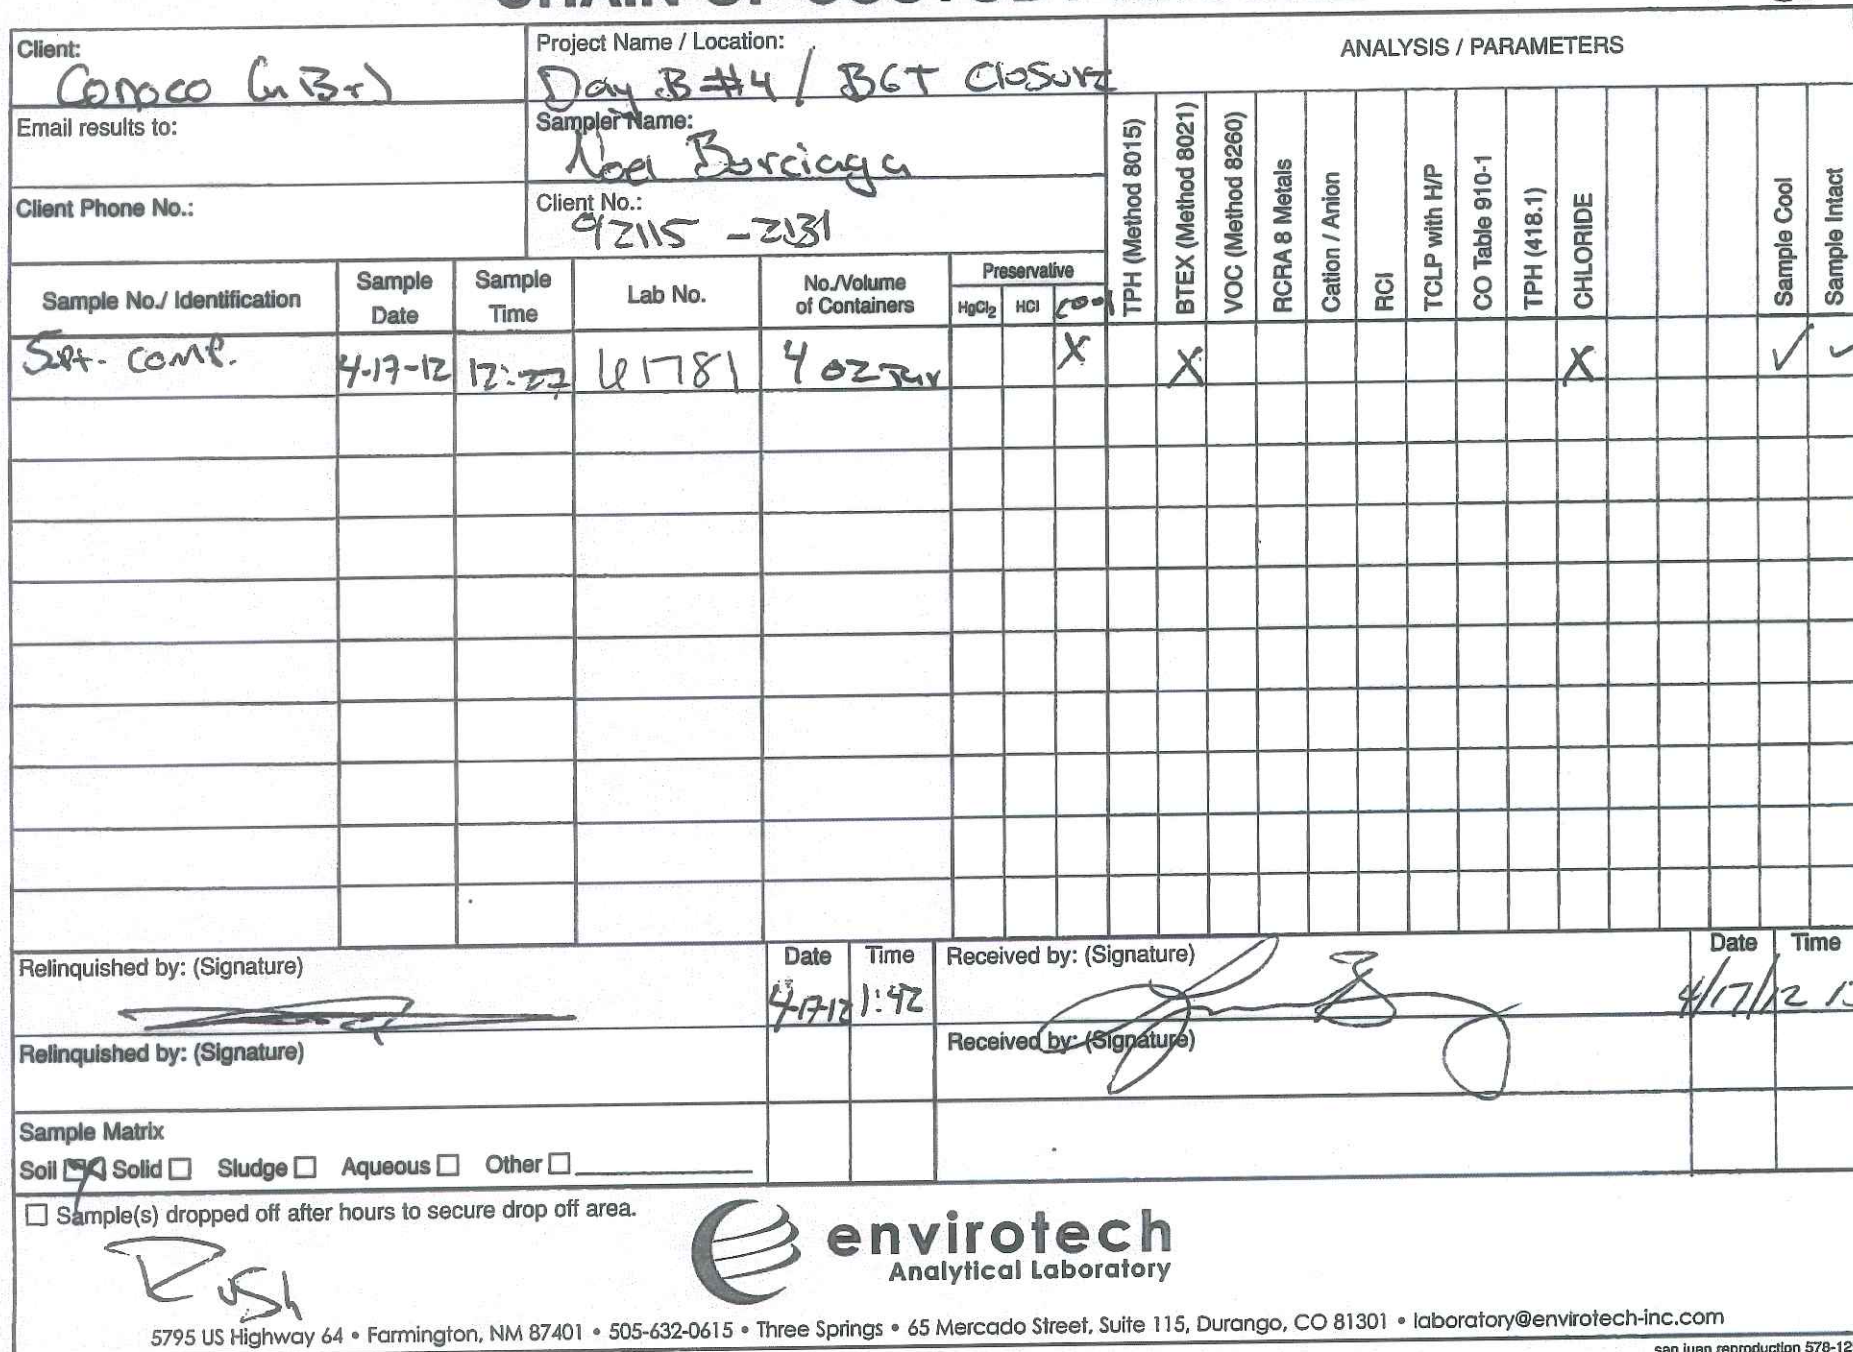 Client:
Conoco
Project Name / Location:
Day B #4 / BGT Closure
ANALYSIS / PARAMETERS
Email results to:
Sampler Name:
Noel Borciaga
Client Phone No.:
Client No.:
92115 - 2131
Sample No./ Identification
Sample Date
Sample Time
Lab No.
No./Volume of Containers
Preservative
HgCl2
HCl
cool
TPH (Method 8015)
BTEX (Method 8021)
VOC (Method 8260)
RCRA 8 Metals
Cation / Anion
RCI
TCLP with H/P
CO Table 910-1
TPH (418.1)
CHLORIDE
Sample Cool
Sample Intact
5pt. comp. 4-17-12 12:27 61781 4 oz Jar X X X ✓ ✓
Relinquished by: (Signature)
Date
Time
4-17-12 1:42
Received by: (Signature)
Date
Time
4/17/12
Relinquished by: (Signature)
Received by: (Signature)
Sample Matrix
Soil Solid Sludge Aqueous Other
Sample(s) dropped off after hours to secure drop off area.
Rush
envirotech
Analytical Laboratory
5795 US Highway 64 • Farmington, NM 87401 • 505-632-0615 • Three Springs • 65 Mercado Street, Suite 115, Durango, CO 81301 • laboratory@envirotech-inc.com
san juan reproduction 578-12